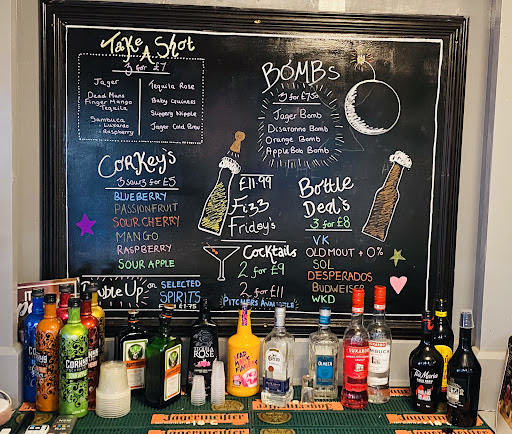 Take A Shot
3 for £7
Jager
Dead Mans
Finger Mango
Tequila
Sambuca
- Luxardo
- Raspberry
Tequila Rose
Baby Guiness
Slippery Nipple
Jager Cold Brew
BOMBs
3 for £7.50
Jager Bomb
Disaronno Bomb
Orange Bomb
Apple Bob Bomb
CorKeys
3 sour3 for £5
BLUEBERRY
PASSIONFRUIT
SOUR CHERRY
MANGO
RASPBERRY
SOUR APPLE
£11.99
Fizz
Friday's
Bottle
Deals
3 for £8
VK
OLD MOUT + 0%
SOL
DESPERADOS
BUDWEISER
WKD
Cocktails
2 for £9
2 for £11
PITCHERS
uble Up on SELECTED
SPIRITS
£1.75
Corky's
TEQUILA
ROSE
Tia Maria
Jägermeister
Jägermeister